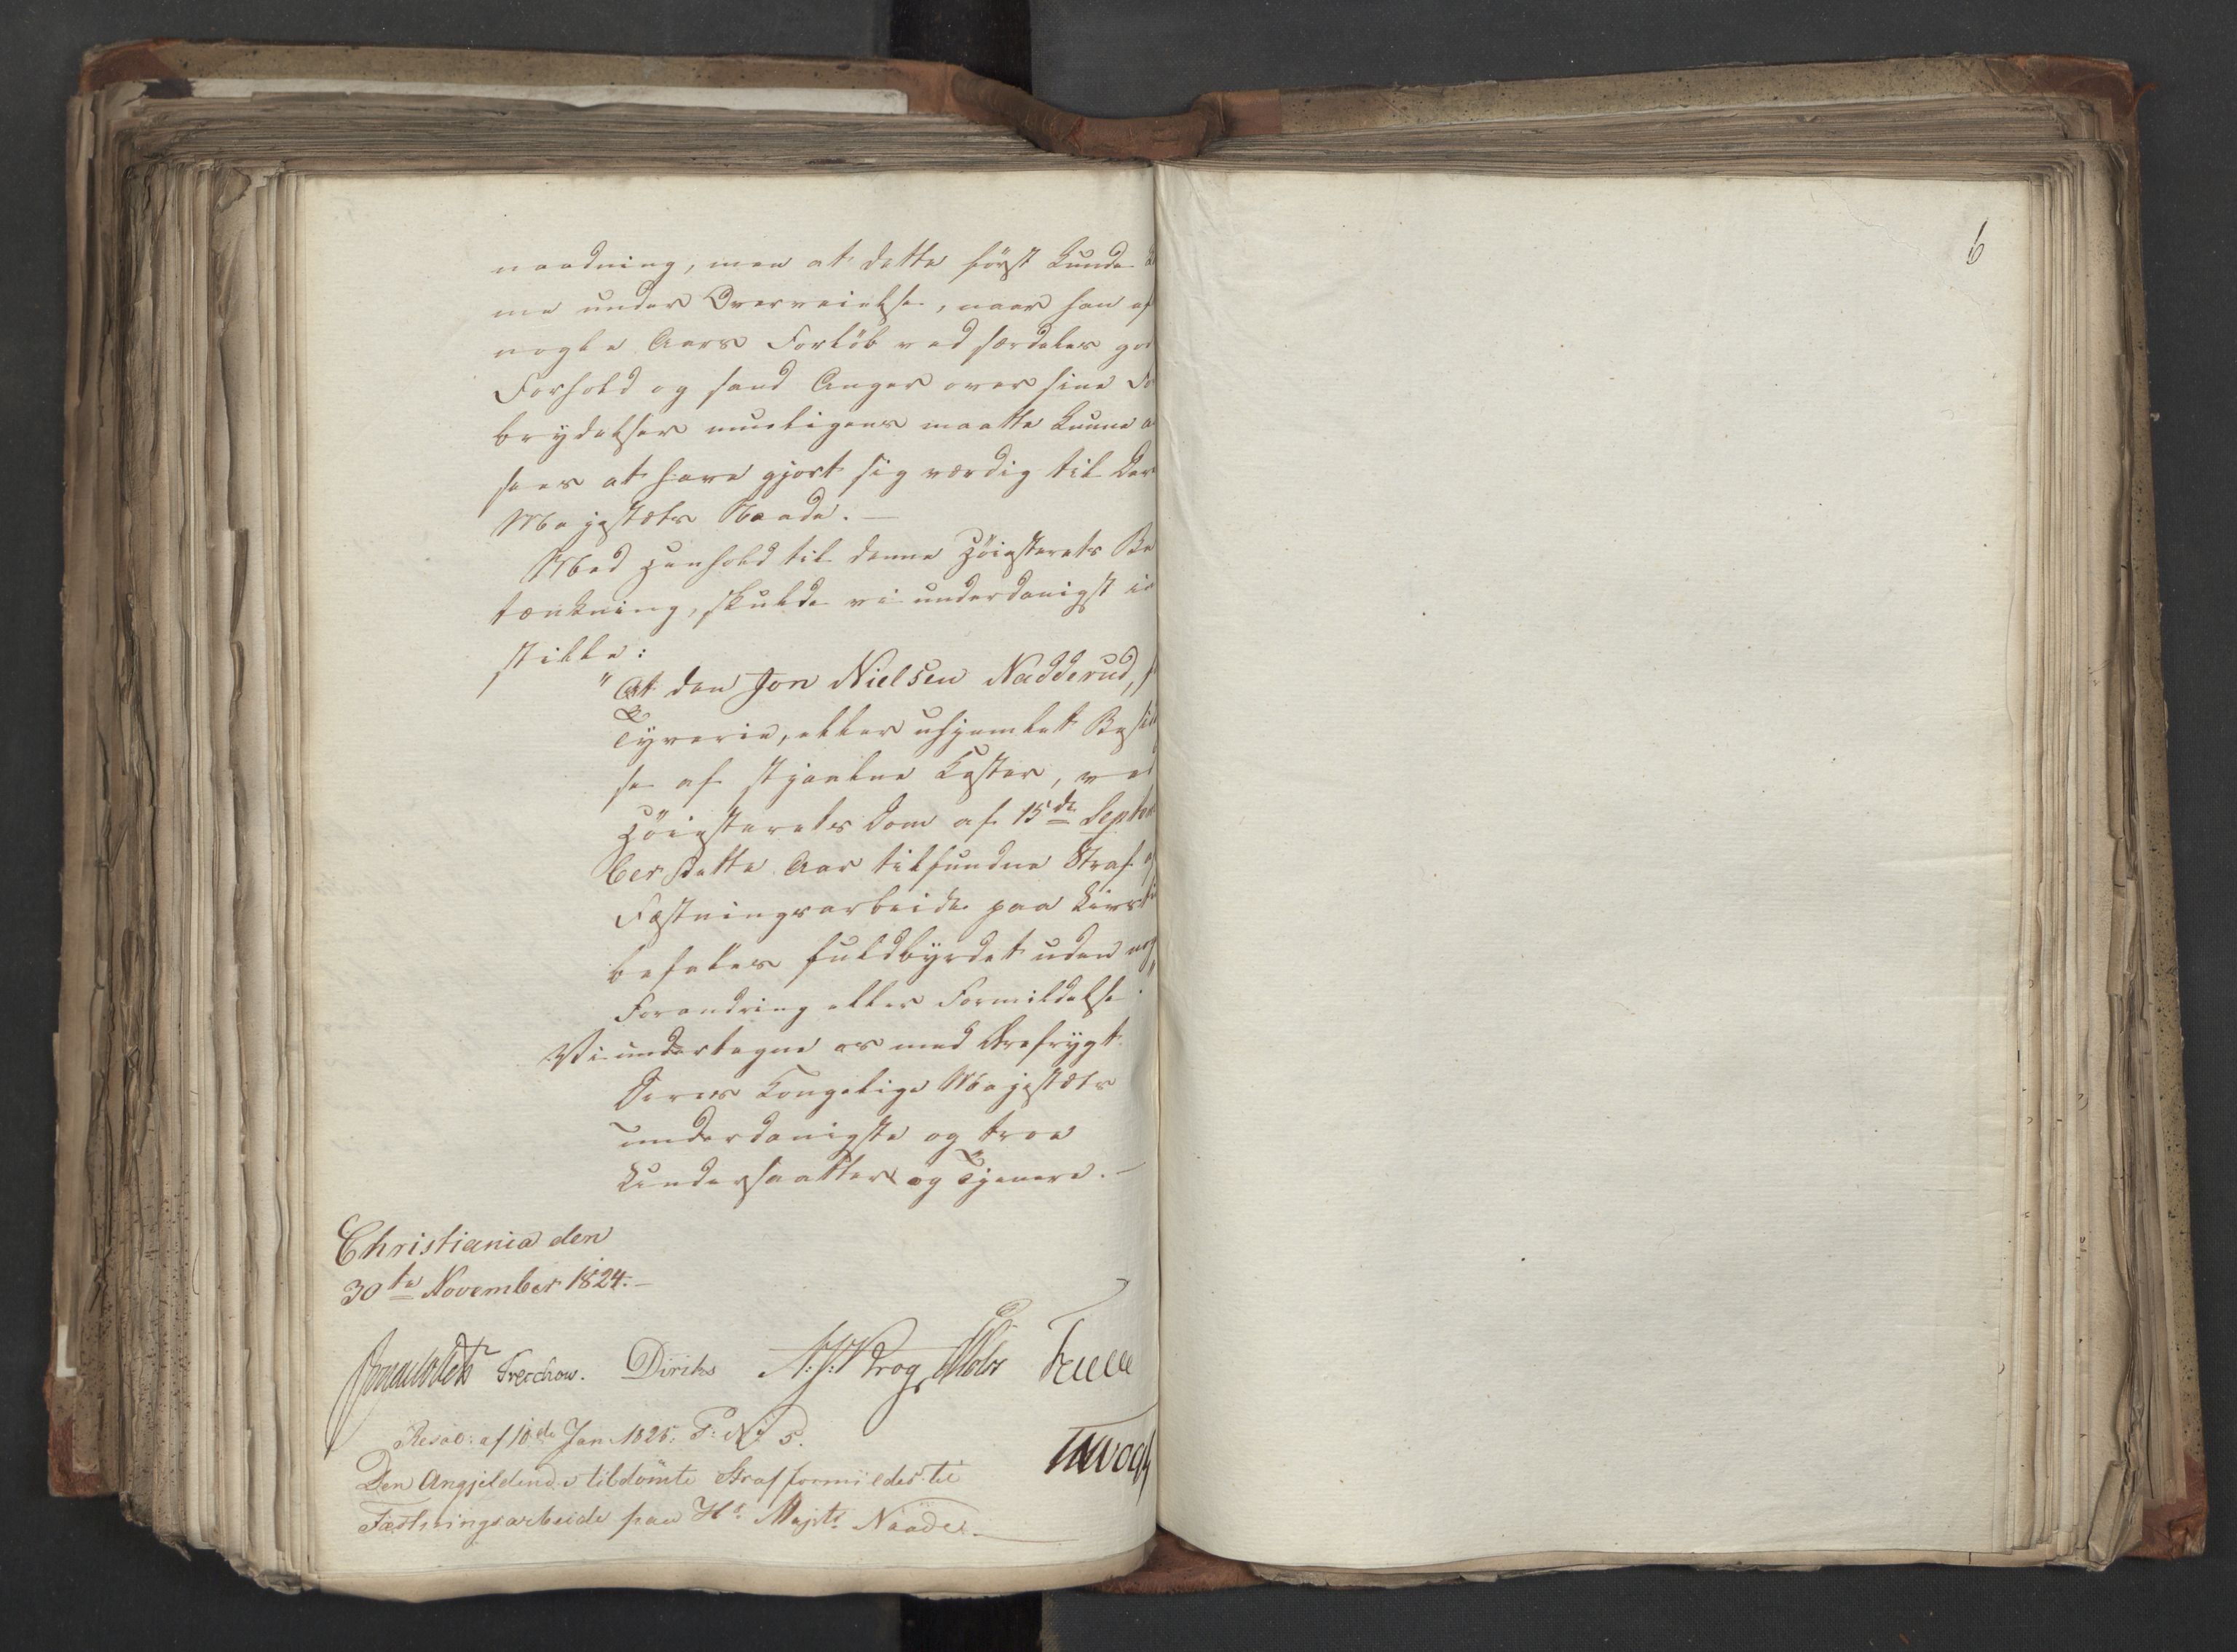 naadning, men at dette først kunde
me under Overveielse, naar han af
nogle Aars Forløb ved særdeles god
Forhold og sand Anger over sine Fo
brydelser mueligens maatte kunne a
sees at have gjort sig værdig til Der
Majestæts Naade. —
Med Henhold til denne Høiesterets Be
tænkning, skulde vi underdanigst in
stille:
"At den Jon Nielsen Nadderud, f
Tyverie, eller uhjemlet Besid
se af stjaalne Koster, ved
Høiesterets Dom af 15de Septem
ber dette Aar tilfundne Straf af
Fæstningsarbeide paa Livsti
befales fuldbyrdet uden nog
Forandring eller Formildelse."
Vi undertegne os med Ærefrygt
Deres Kongelige Majestæts
underdanigste og troe
Undersaatter og Tjenere. —
Christiania den
30te November 1824. —
Treschow. Diriks
Resol: af 10de Jan. 1825. P: No 5.
Den Angjeldende tildömte Straf formildes til
Fæstningsarbeide paa Hs. Majts. Naade. —
6